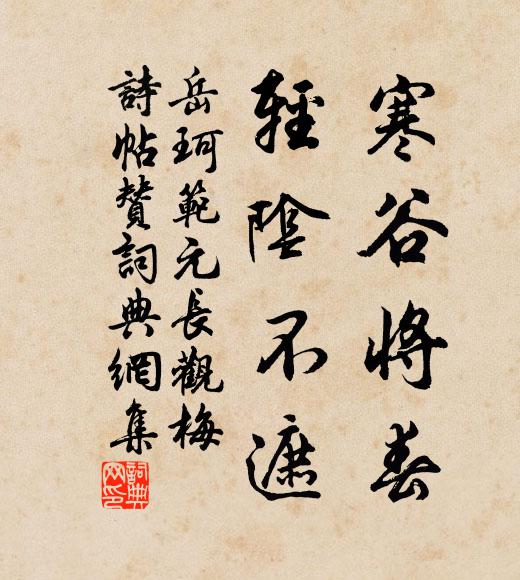 寒谷將春
輕陰不遮
岳珂範元長觀梅
詩帖贊詞典網集
詞典网印